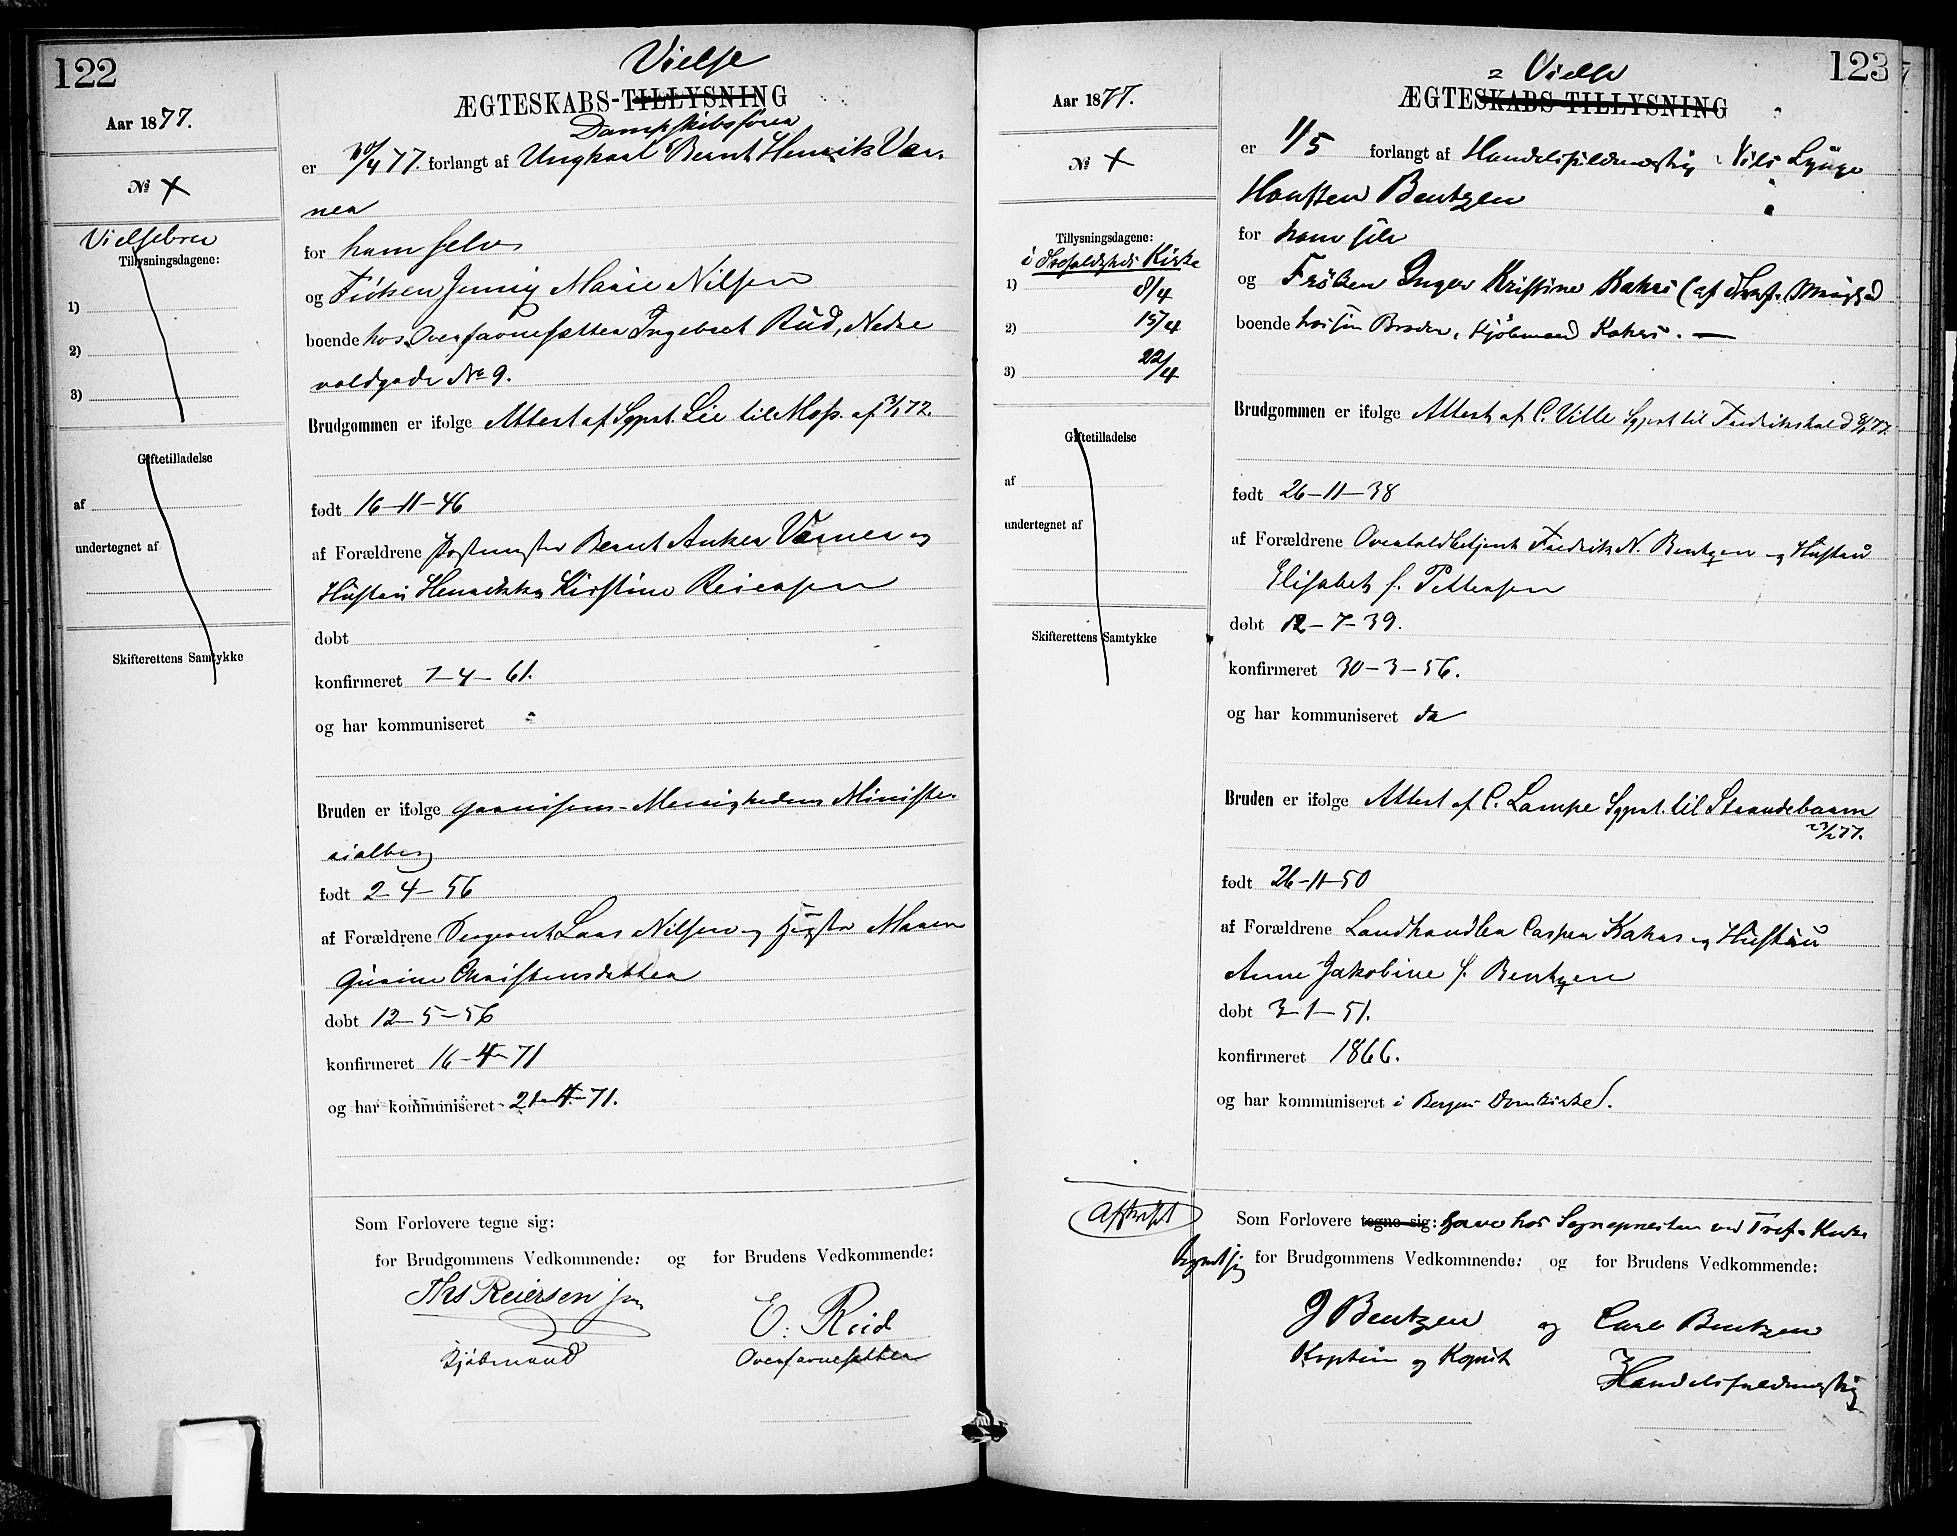 122
Vielse
ÆGTESKABS-TILLYSNING
Aar 1877.
Dampskibsfører
er 30/4 77. forlangt af Ungkarl Bernt Henrik Vær-
№ ×
ner
Vielsebrev
for ham selv
Tillysningsdagene:
og Frøken Jenny Marie Nilsen
1)
boende hos Overjavnesætter Ingebret Rud, Nedre
2)
voldgade № 9.
3)
Brudgommen er ifølge Attest af Sgprst. Lie til Moss. af 72.
Giftetilladelse
født 16-11-46
af
af Forældrene Postmester Bernt Anker Værner og
undertegnet af
Hustru Kirstine Reiersen
døbt
Skifterettens Samtykke
konfirmeret 7-4-61.
og har kommuniseret
Bruden er ifølge Garnisons-Menighedens Ministe-
rialbog
født 2-4-56
af Forældrene Sergeant Lars Nilsen og Hustr Maren
Gurine Christensdatter
døbt 12-5-56
konfirmeret 16-4-71
og har kommuniseret 21-4-71.
Som Forlovere tegne sig:
for Brudgommens Vedkommende: og for Brudens Vedkommende:
Ths Reiersen jun
E. Rud
Kjøbmand
123
2 Vielse
ÆGTESKABS-TILLYSNING
Aar 1877.
er 1/5 forlangt af Handelsfuldmægtig Nils Lynge
№ ×
Houffen Bentzen
for ham selv
Tillysningsdagene:
i Trefoldigheds Kirke
og Frøken Inger Kristine Kahrs (af Tref. Menighed
1) 8/4
2) 15/4
boende hos sin Broder, Kjøbmand Kahrs. —
3) 22/4
Brudgommen er ifølge Attest af C. Ville Sgprst til Fredrikshald 77.
Giftetilladelse
af
født 26-11-38
undertegnet af
af Forældrene Overtoldbetjent Fredrik N. Bentzen og Hustru
Elisabeth f. Pettersen
Skifterettens Samtykke
døbt 12-7-39.
konfirmeret 30-3-56.
og har kommuniseret da
Bruden er ifølge Attest af C. Lampe Sgprst. til Strandebarm
77.
født 26-11-50
af Forældrene Landhandler Casper Kahrs og Hustru
Anne Jakobine f. Bentzen
døbt 3-1-51.
konfirmeret 1866.
og har kommuniseret i Bergens Domkirke.
Afskrift
Som Forlovere tegne sig: have hos Sognepresten ved Tref. Kirke
tegnet sig for Brudgommens Vedkommende: og for Brudens Vedkommende:
J Bentzen og Carl Bentzen
Kaptein og
Handelsfuldmægtig